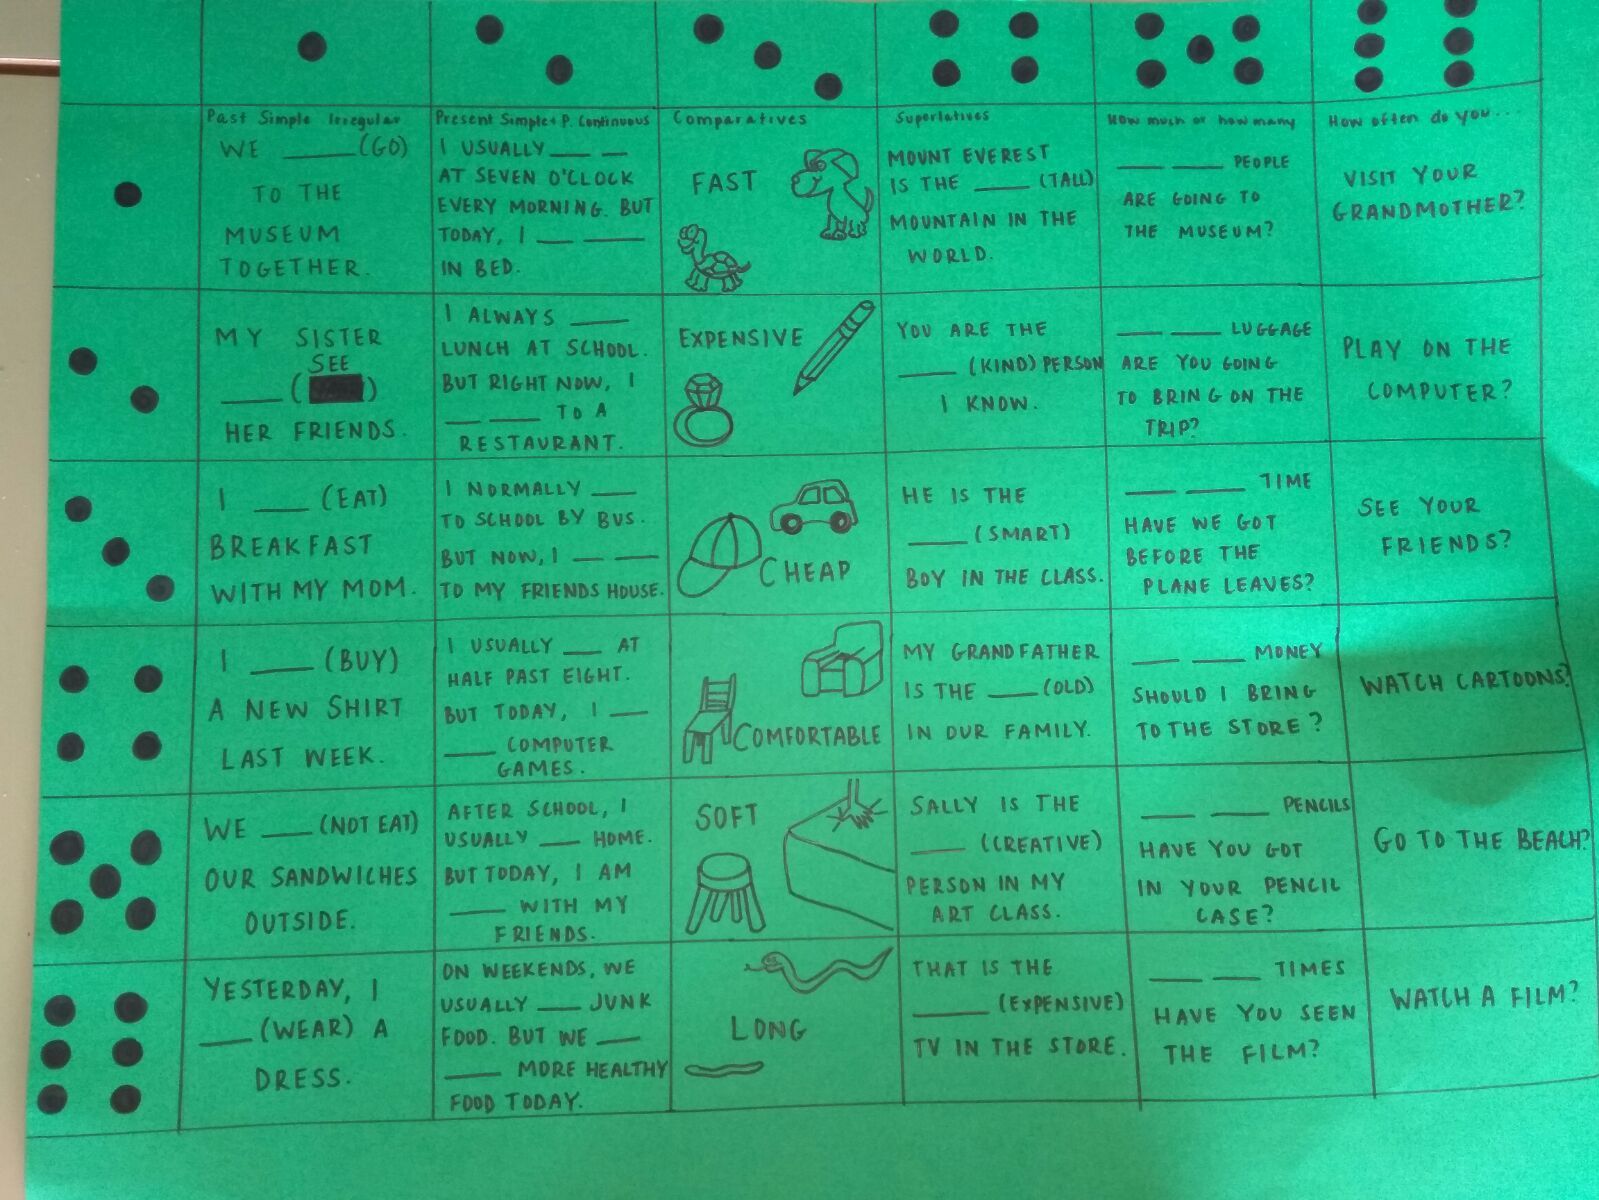 Past Simple Irregular
Present Simple + P. Continuous
Comparatives
Superlatives
How much or how many
How often do you...
WE ____ (GO)
TO THE
MUSEUM
TOGETHER.
I USUALLY ___ __
AT SEVEN O'CLOCK
EVERY MORNING. BUT
TODAY, I __ ____
IN BED.
FAST
MOUNT EVEREST
IS THE ____ (TALL)
MOUNTAIN IN THE
WORLD.
____ ____ PEOPLE
ARE GOING TO
THE MUSEUM?
VISIT YOUR
GRANDMOTHER?
MY SISTER
SEE
____ ( )
HER FRIENDS.
I ALWAYS ____
LUNCH AT SCHOOL.
BUT RIGHT NOW, I
__ ___ TO A
RESTAURANT.
EXPENSIVE
YOU ARE THE
____ (KIND) PERSON
I KNOW.
____ ____ LUGGAGE
ARE YOU GOING
TO BRING ON THE
TRIP?
PLAY ON THE
COMPUTER?
I ____ (EAT)
BREAKFAST
WITH MY MOM.
I NORMALLY ___
TO SCHOOL BY BUS.
BUT NOW, I __ ___
TO MY FRIENDS HOUSE.
CHEAP
HE IS THE
____ (SMART)
BOY IN THE CLASS.
____ ____ TIME
HAVE WE GOT
BEFORE THE
PLANE LEAVES?
SEE YOUR
FRIENDS?
I ____ (BUY)
A NEW SHIRT
LAST WEEK.
I USUALLY ___ AT
HALF PAST EIGHT.
BUT TODAY, I ___
____ COMPUTER
GAMES.
COMFORTABLE
MY GRANDFATHER
IS THE ____ (OLD)
IN OUR FAMILY.
____ ____ MONEY
SHOULD I BRING
TO THE STORE?
WATCH CARTOONS?
WE ____ (NOT EAT)
OUR SANDWICHES
OUTSIDE.
AFTER SCHOOL, I
USUALLY ___ HOME.
BUT TODAY, I AM
____ WITH MY
FRIENDS.
SOFT
SALLY IS THE
____ (CREATIVE)
PERSON IN MY
ART CLASS.
____ ____ PENCILS
HAVE YOU GOT
IN YOUR PENCIL
CASE?
GO TO THE BEACH?
YESTERDAY, I
____ (WEAR) A
DRESS.
ON WEEKENDS, WE
USUALLY ___ JUNK
FOOD. BUT WE ___
____ MORE HEALTHY
FOOD TODAY.
LONG
THAT IS THE
____ (EXPENSIVE)
TV IN THE STORE.
____ ____ TIMES
HAVE YOU SEEN
THE FILM?
WATCH A FILM?